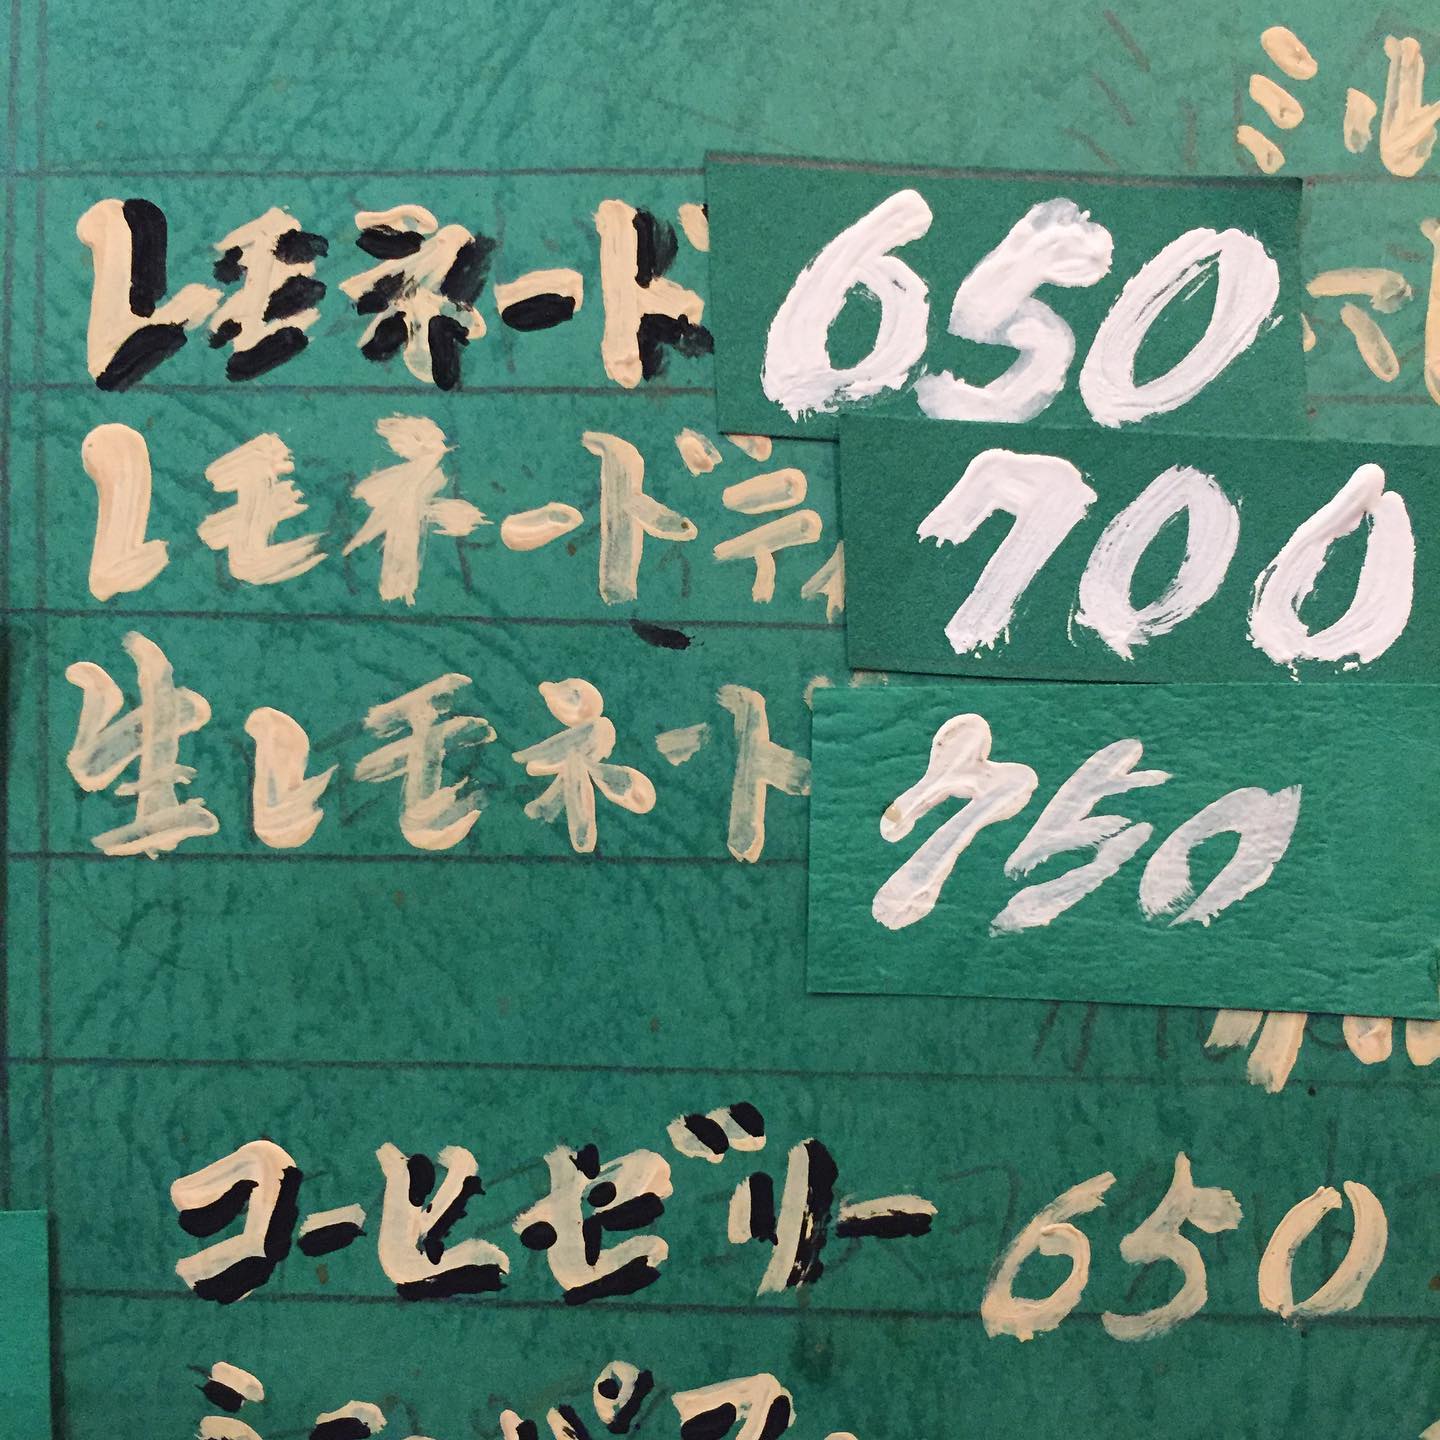 ミル
レモネード 650
レモネードティ 700
生レモネート 750
コーヒゼリー 650